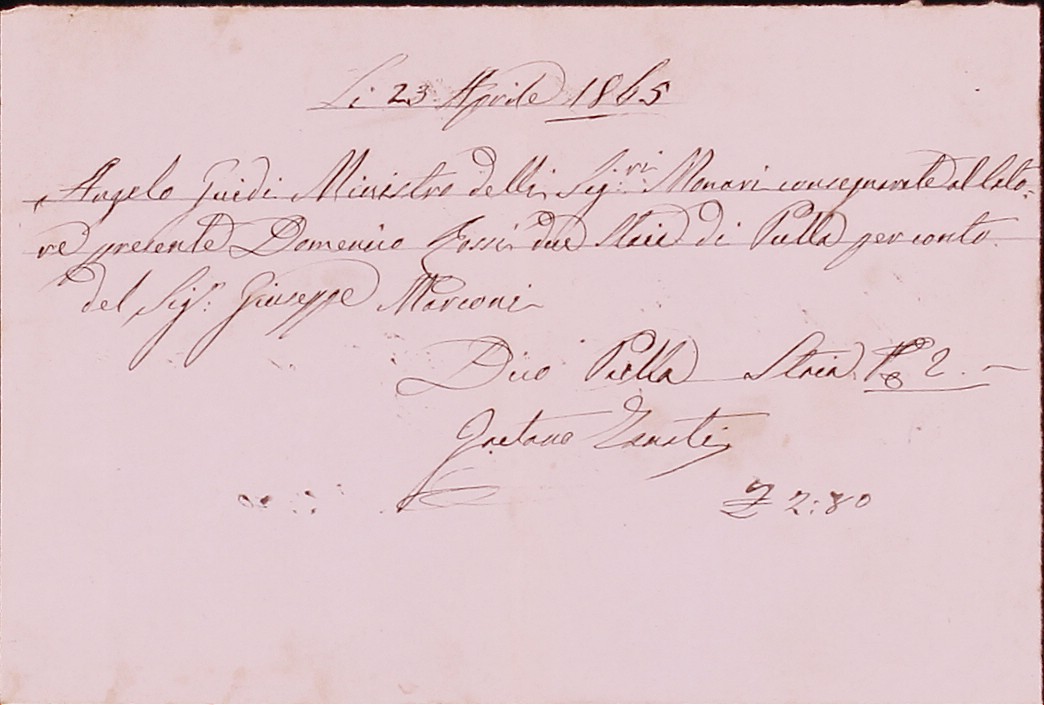 Li 23 Aprile 1865
Angelo Guidi Ministro delli Sig.ri Monari consegnarete al lato-
re presente Domenico Rossi due Staia di Pulla per conto
del Sig.r Giuseppe Marconi
Dico Pulla Staia N. 2. -
Gaetano Zanati
£ 2:80